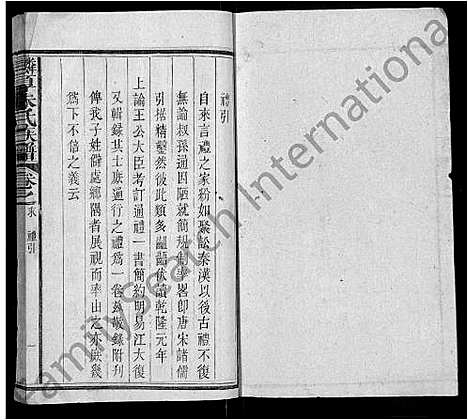 禮引
自來言禮之家粉如聚訟秦漢以後古禮不復
無論叔孫通因陋就簡規制畢畧卽唐宋諸儒
引據精鑿然彼此類多齟齬伏讀乾隆元年
上論王公大臣考訂通禮一書簡約明易江大復
又輯錄其士庶通行之禮爲一卷茲敬錄附刋
俾我子姓僻處鄉隅者展視而率由之亦庶幾
爲下不信之義云
朱氏族譜
卷之末 禮引
一
Familysearch International